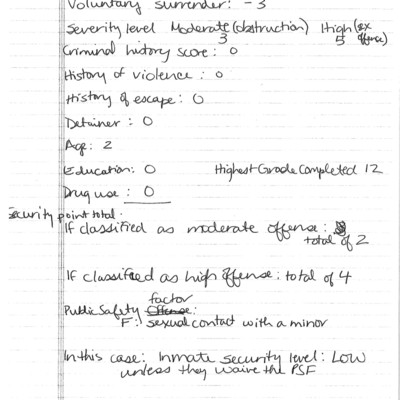 Voluntary surrender: -3
Severity level Moderate (obstruction) High (sex offense)
3 5
Criminal history score: 0
History of violence: 0
History of escape: 0
Detainer: 0
Age: 2
Education: 0 Highest Grade Completed 12
Drug use: 0
Security point total:
If classified as moderate offense:
total of 2
If classified as high offense: total of 4
factor
Public Safety Offense:
F: sexual contact with a minor
In this case: Inmate security level: LOW
unless they waive the PSF